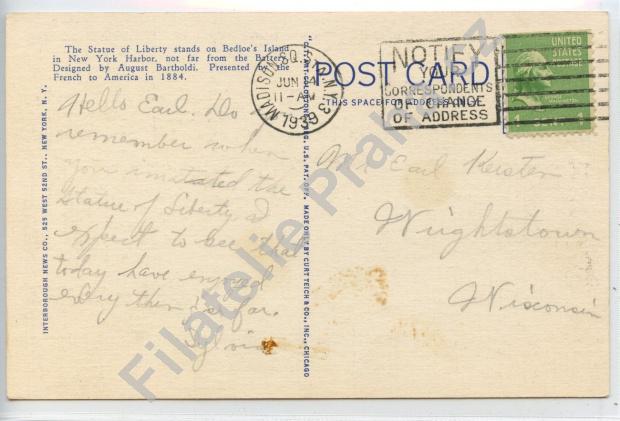 The Statue of Liberty stands on Bedloe's Island
in New York Harbor, not far from the Battery.
Designed by August Bartholdi. Presented by the
French to America in 1884.
Hello Earl. Do you
remember when
you imitated the
Statue of Liberty I
expect to see that
today have enjoyed
every thing so far.
Sylvia
INTERBOROUGH NEWS CO., 525 WEST 52ND ST., NEW YORK, N. Y.
"C.T. ART-COLORTONE" REG. U.S. PAT. OFF. MADE ONLY BY CURT TEICH & CO., INC., CHICAGO
POST CARD
THIS SPACE FOR ADDRESS
MADISON SQ. STA. N.Y.
JUN 14
11-AM
NOTIFY
YOUR
CORRESPONDENTS
OF CHANGE
OF ADDRESS
UNITED
STATES
Mr. Earl Kersten
Wrightstown
Wisconsin
Filatelie Praha.cz